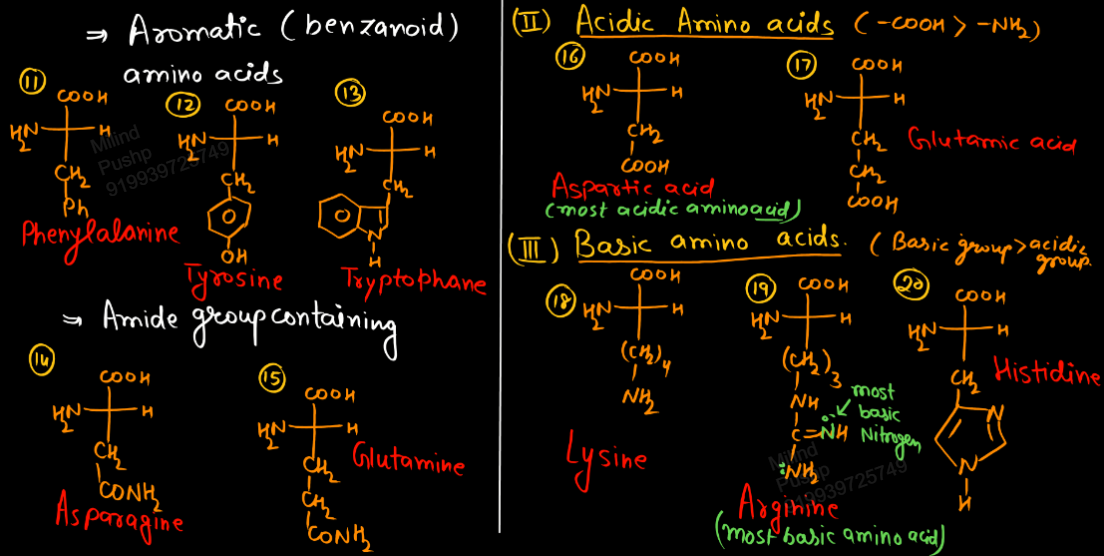 ⇒ Aromatic (benzanoid)
amino acids
11
COOH
H₂N
H
CH₂
Ph
Phenylalanine
12
COOH
H₂N
H
CH₂
OH
Tyrosine
13
COOH
H₂N
H
CH₂
N
H
Tryptophane
Milind
Pushp
919939725749
⇒ Amide group containing
14
COOH
H₂N
H
CH₂
CONH₂
Asparagine
15
COOH
H₂N
H
CH₂
CH₂
CONH₂
Glutamine
(II) Acidic Amino acids (-COOH > -NH₂)
16
COOH
H₂N
H
CH₂
COOH
Aspartic acid
(most acidic aminoacid)
17
COOH
H₂N
H
CH₂
CH₂
COOH
Glutamic acid
(III) Basic amino acids. (Basic group > acidic
group.
18
COOH
H₂N
H
(CH₂)₄
NH₂
Lysine
19
COOH
H₂N
H
(CH₂)₃
NH
C=NH
NH₂
most
basic
Nitrogen
Arginine
(most basic amino acid)
20
COOH
H₂N
H
CH₂
N
N
H
Histidine
Milind
Pushp
919939725749